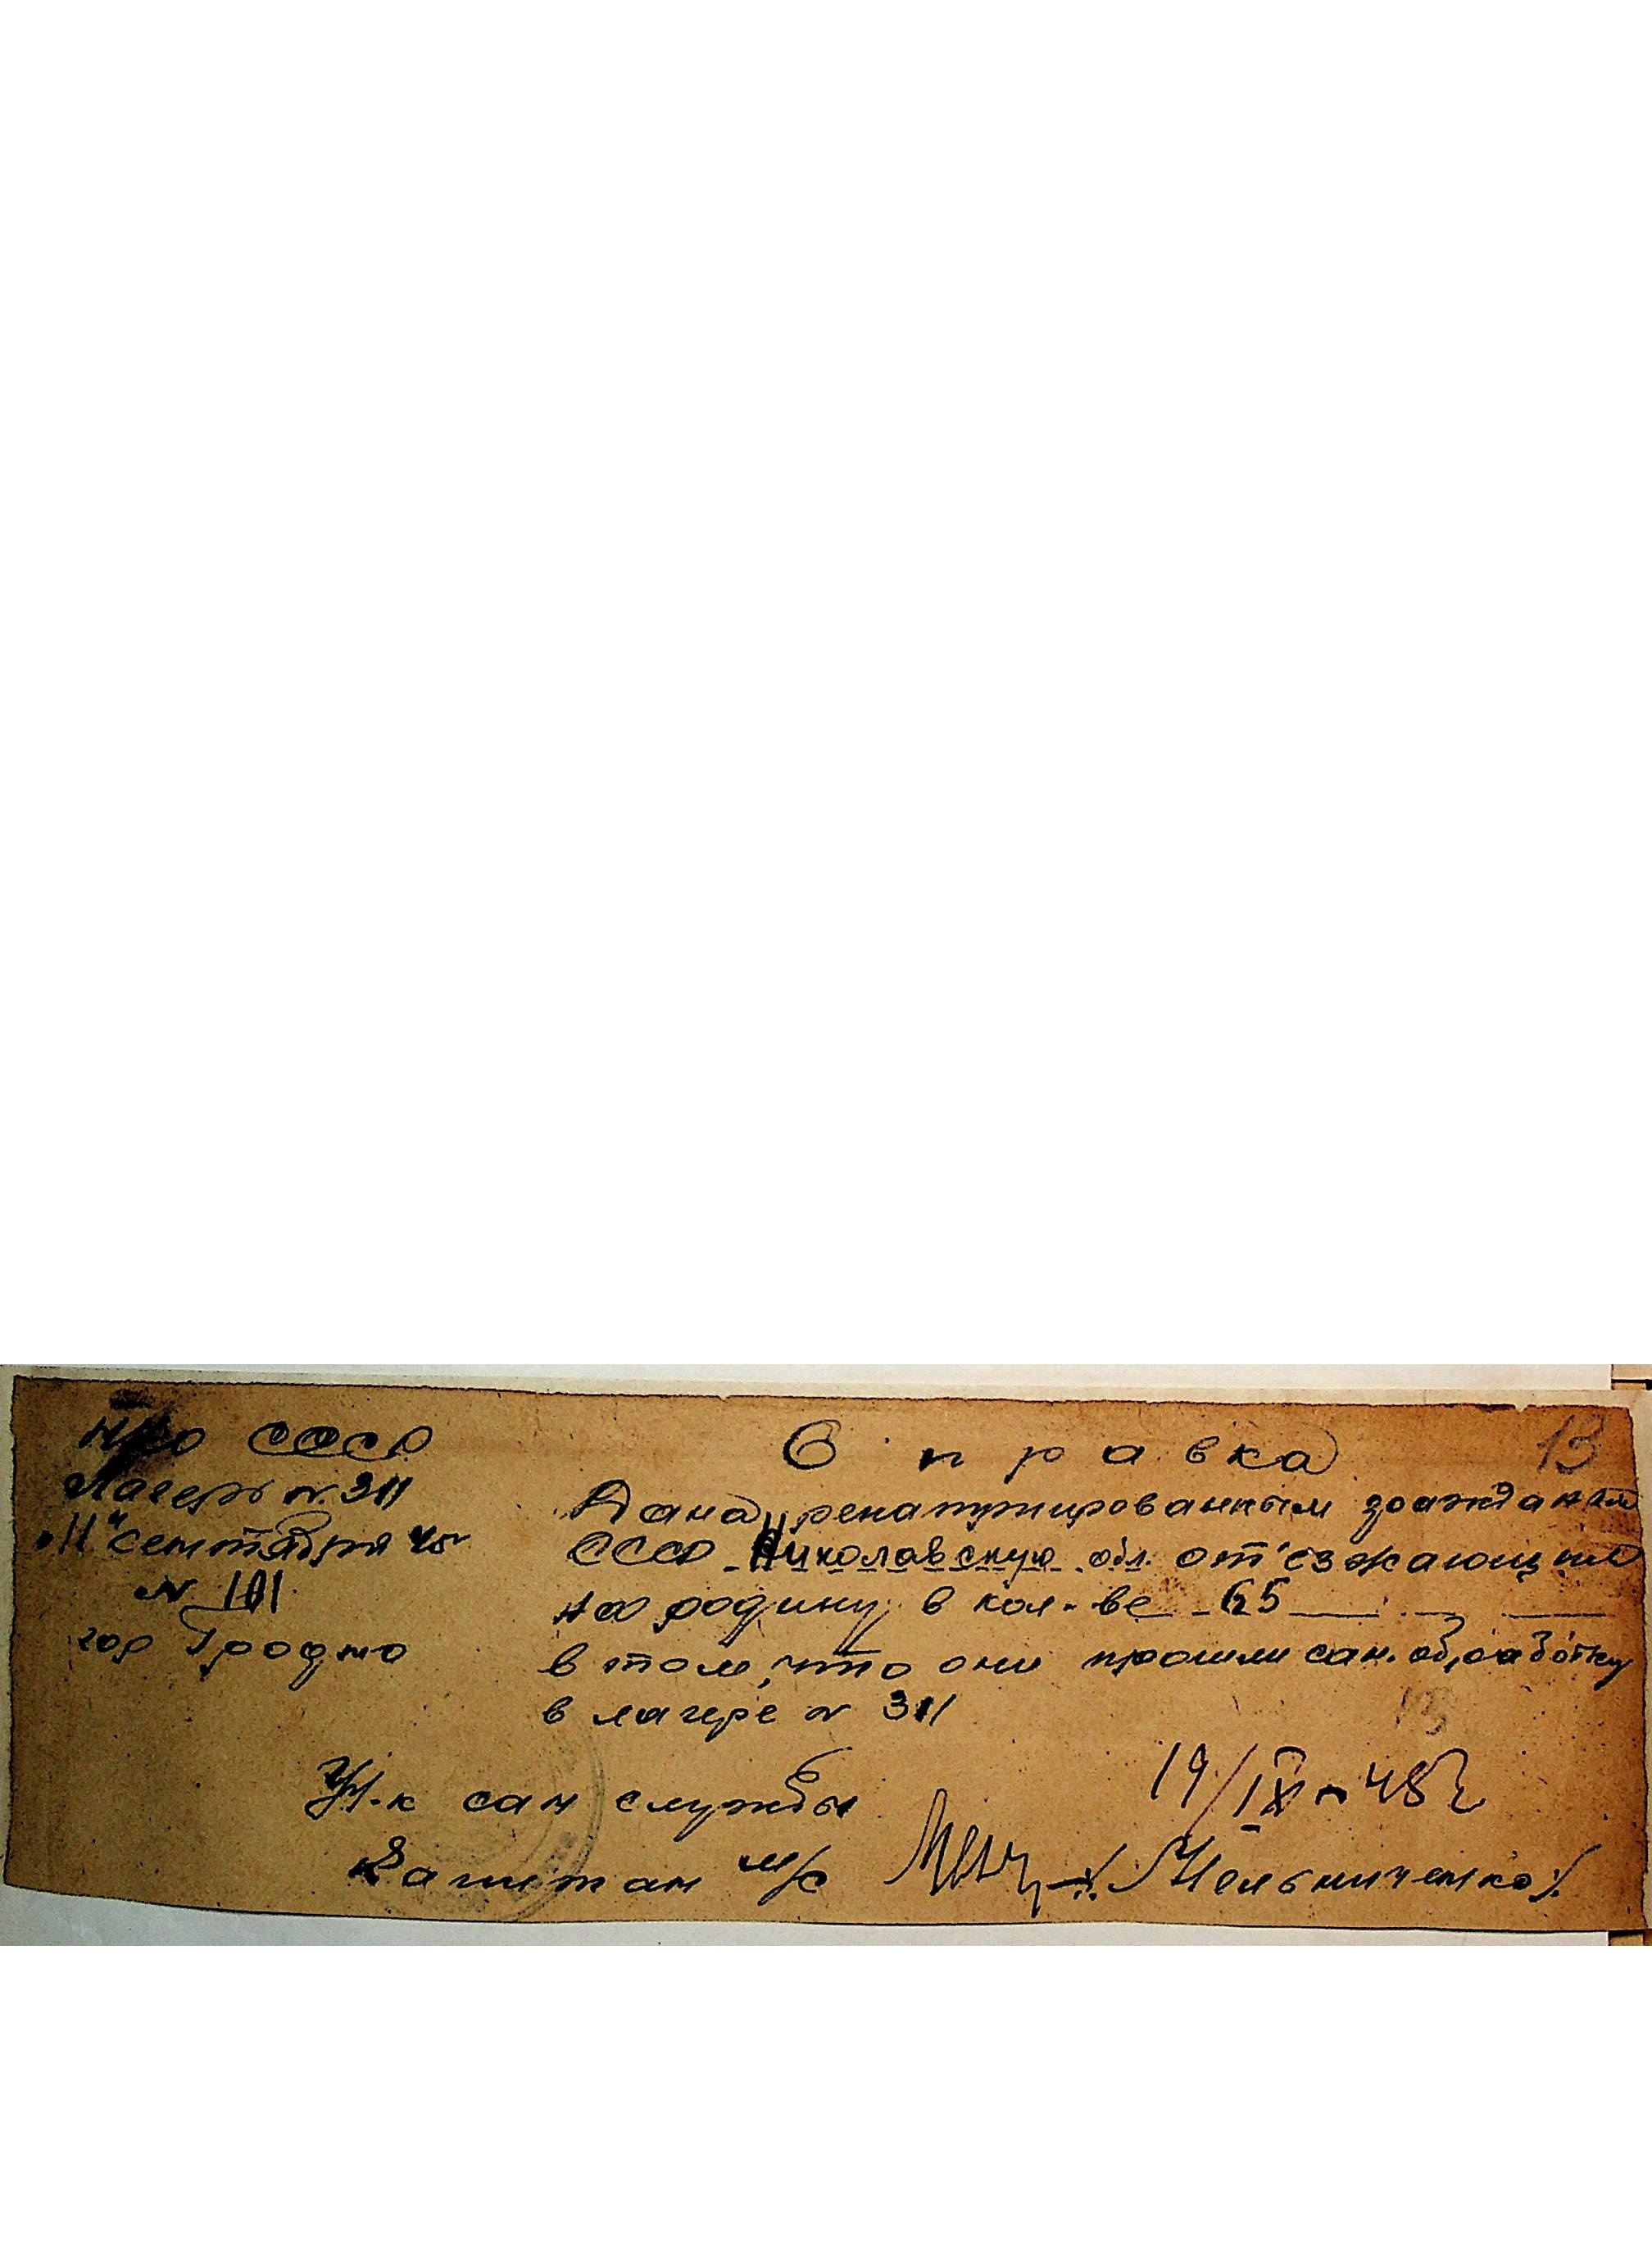 НКО СССР
Лагерь N. 311
"11" сентября 45
N 101
гор Гродно
Справка
13
Дана репатриированным гражданам
СССР Николавскую обл. от'езжающие
на родину в кол-ве 65
в том, что они прошли сан. обработку
в лагере N 311
Н-к сан службы
19/IX - 45 г
Капитан м/с /Мельниченко/.